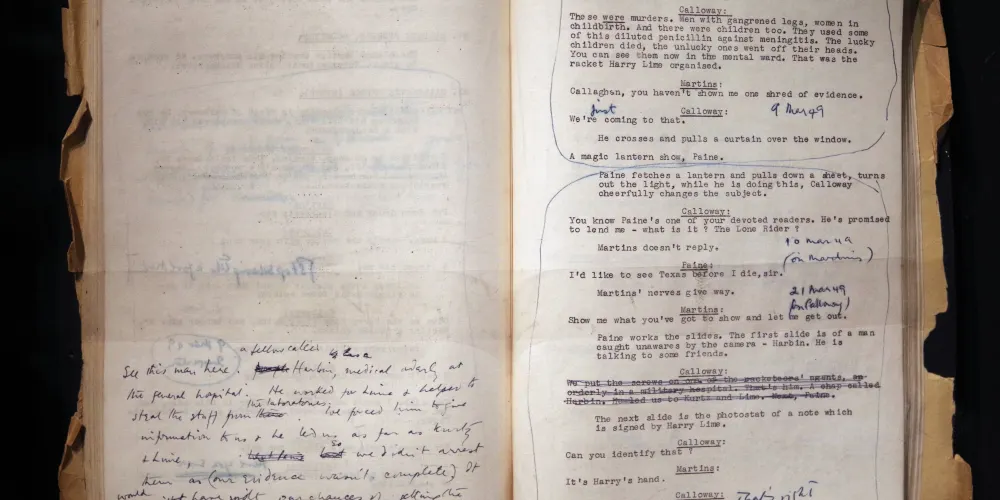 See this man here. a fellow called
Harbin, medical orderly at
the general hospital. He worked for Lime & helped to
steal the stuff from the laboratories. We forced him to give
information to us & he led us as far as Kurtz
& Lime, we didn't arrest
them as (our evidence wasn't complete) It
would have our chances of getting the
Calloway:
These were murders. Men with gangrened legs, women in
childbirth. And there were children too. They used some
of this diluted penicillin against meningitis. The lucky
children died, the unlucky ones went off their heads.
You can see them now in the mental ward. That was the
racket Harry Lime organised.
Martins:
Callaghan, you haven't shown me one shred of evidence.
Calloway: 9 Mar 49
We're just coming to that.
He crosses and pulls a curtain over the window.
A magic lantern show, Paine.
Paine fetches a lantern and pulls down a sheet, turns
out the light, while he is doing this, Calloway
cheerfully changes the subject.
Calloway:
You know Paine's one of your devoted readers. He's promised
to lend me - what is it ? The Lone Rider ?
Martins doesn't reply. 10 Mar 49
Paine: (on Martins)
I'd like to see Texas before I die,sir.
Martins' nerves give way. 21 Mar 49
Martins: (on Calloway)
Show me what you've got to show and let me get out.
Paine works the slides. The first slide is of a man
caught unawares by the camera - Harbin. He is
talking to some friends.
Calloway:
We put the screws on one of the racketeers' agents, an
orderly in a military hospital. That's him. A chap called
Harbin. He led us to Kurtz and Lime. Next, Paine.
The next slide is the photostat of a note which
is signed by Harry Lime.
Calloway:
Can you identify that ?
Martins:
It's Harry's hand.
Calloway: That's right